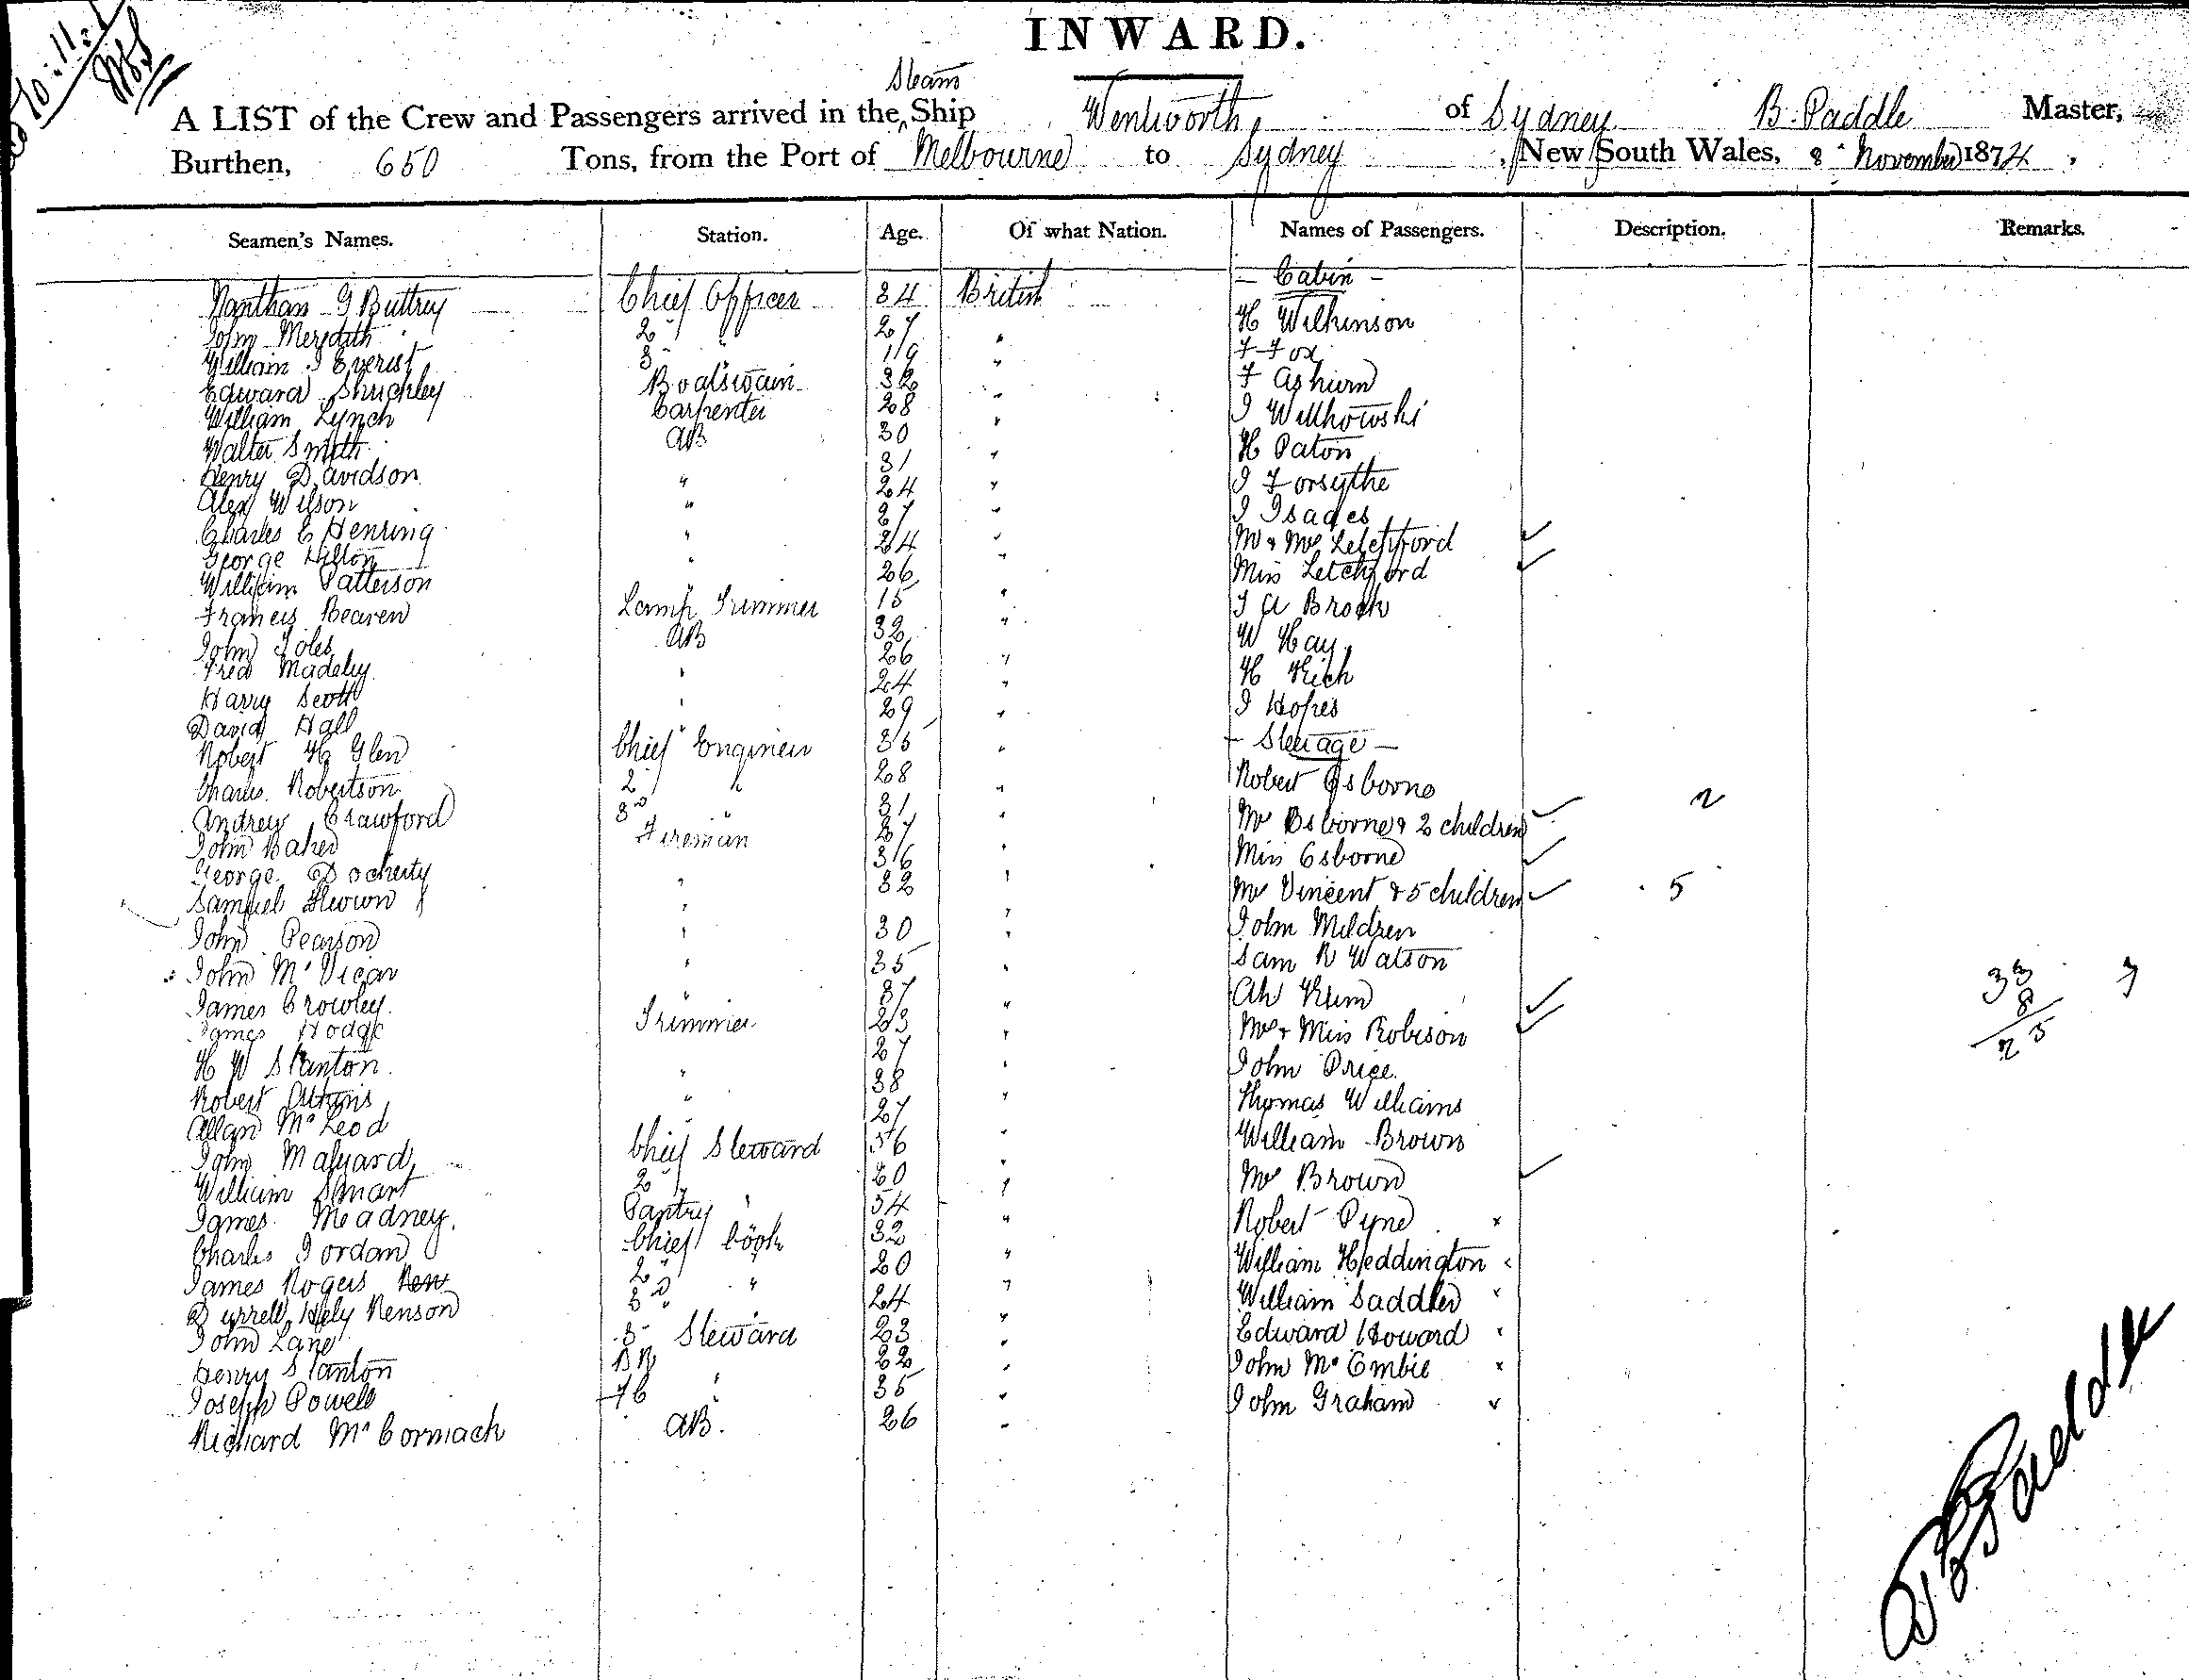 INWARD.
Steam
A LIST of the Crew and Passengers arrived in the Ship Wentworth of Sydney B. Paddle Master,
Burthen, 650 Tons, from the Port of Melbourne to Sydney, New South Wales, 8 November 1874,
Seamen's Names. Station. Age. Of what Nation. Names of Passengers. Description. Remarks.
- Cabin -
Nanthan G Buttrey Chief Officer 34 British
John Meredith 2 " 27 " H Wilkinson
William J Everist 3 " 19 " F Fox
Edward Boatswain 32 " F
William Lynch Carpenter 28 " J
Walter Smith AB 30 " H Paton
Henry Davidson " 31 " J Forsythe
Alex Wilson " 24 " J Isaacs
Charles E Henning " 27 " Mr & Mrs Letchford
George Hilton " 24 " Miss Letchford
William Patterson " 26 "
Francis Beaven Lamp Trimmer 15 " J A Brock
John Toles AB 32 " W Hay
Fred Madeley " 26 " H Rich
Harry Scott " 24 " J Hopes
David Hall " 29 "
Robert H Glen Chief Engineer 35 " - Steerage -
Charles Robertson 2 " 28 " Robert Osborne
Andrew Crawford 3D " 31 " Mrs Osborne & 2 children 2
John Baker Fireman 27 "
George Docherty " 36 " Miss Osborne
Samuel " 32 " Mrs Vincent & 5 children 5
John Pearson " 30 " John Mildren
John McVicar " 35 " Sam R Watson
James Crowley " 37 " Ah Kum 33 7
James Hodge Trimmer 23 " Mrs & Miss Robison 8
H W Stanton " 27 " John Price 25
Robert " 38 " Thomas Williams
Allan McLeod " 27 " William Brown
John Malyard Chief Steward 36 "
William Smart 2 " 20 " Mrs Brown
James Meadney. Pantry " 54 " Robert Pyne x
Charles Jordan Chief Cook 32 " William Heddington
James Rogers 2 " 20 " William Saddler
Hely Renson 3D " 24 "
John Lane 3 Steward 23 " Edward Howard
Henry Stanton BR " 22 " John McCombie x
Joseph Powell FC " 35 " John Graham
Richard McCormack AB. 26 "
B Paddle